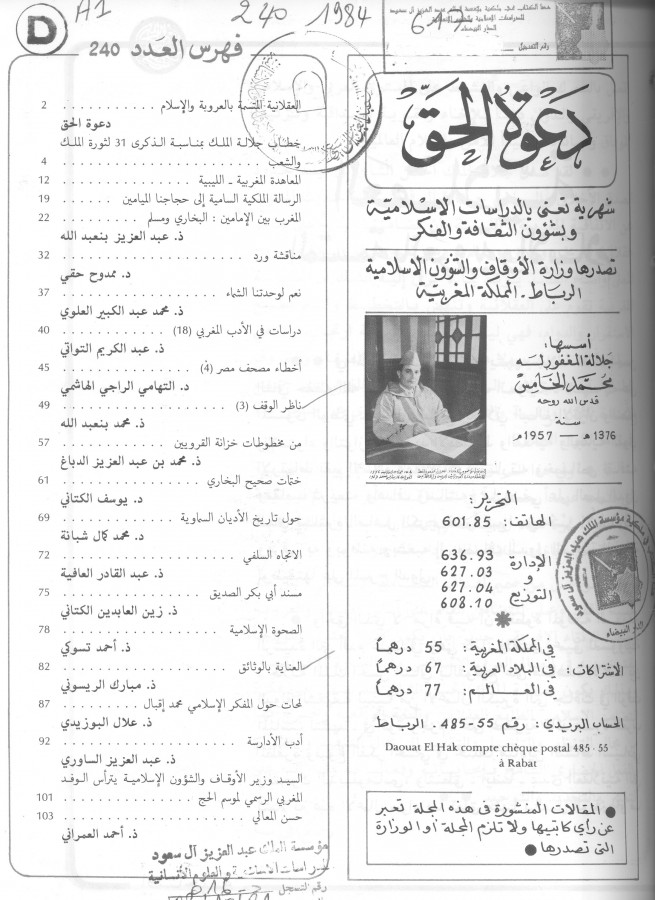 A1
240 1984
D
فهرس العدد 240
العقلانية المتسمة بالعروبة والإسلام . . . . . . . . . . . 2
دعوة الحق
خطاب جلالة الملك بمناسبة الذكرى 31 لثورة الملك
والشعب . . . . . . . . . . . 4
المعاهدة المغربية ـ الليبية . . . . . . . . . . . 12
الرسالة الملكية السامية إلى حجاجنا الميامين . . . . . . . 19
المغرب بين الإمامين : البخاري ومسلم . . . . . . . . . 22
ذ. عبد العزيز بنعبد الله
مناقشة ورد . . . . . . . . . . . 32
د. ممدوح حقي
نعم لوحدتنا الشماء . . . . . . . . . . . 37
ذ. محمد عبد الكبير العلوي
دراسات في الأدب المغربي (18) . . . . . . . . . . . 40
ذ. عبد الكريم التواتي
أخطاء مصحف مصر (4) . . . . . . . . . . . 45
د. التهامي الراجي الهاشمي
ناظر الوقف (3) . . . . . . . . . . . 49
ذ. محمد بنعبد الله
من مخطوطات خزانة القرويين . . . . . . . . . . . 57
ذ. محمد بن عبد العزيز الدباغ
ختمات صحيح البخاري . . . . . . . . . . . 61
د. يوسف الكتاني
حول تاريخ الأديان السماوية . . . . . . . . . . . 69
د. محمد كمال شبانة
الاتجاه السلفي . . . . . . . . . . . 72
ذ. عبد القادر العافية
مسند أبي بكر الصديق . . . . . . . . . . . 75
ذ. زين العابدين الكتاني
الصحوة الإسلامية . . . . . . . . . . . 78
ذ. أحمد تسوكي
العناية بالوثائق . . . . . . . . . . . 82
ذ. مبارك الريسوني
لمحات حول المفكر الإسلامي محمد إقبال . . . . . . . . 87
ذ. علال البوزيدي
أدب الأدارسة . . . . . . . . . . . 92
ذ. عبد العزيز الساوري
السيد وزير الأوقاف والشؤون الإسلامية يترأس الوفد
المغربي الرسمي لموسم الحج . . . . . . . . . . . 101
حسن المعالي . . . . . . . . . . . 103
ذ. أحمد العمراني
مؤسسة الملك عبد العزيز آل سعود
للدراسات الإسلامية والعلوم الإنسانية
رقم التسجل
رقم التسجيل
دعوة الحق
شهرية تعنى بالدراسات الإسلامية
وبشؤون الثقافة والفكر
تصدرها وزارة الأوقاف والشؤون الإسلامية
الرباط ـ المملكة المغربية
أسسها:
جلالة المغفور له
محمد الخامس
قدس الله روحه
سنة
1376 هـ — 1957 م
التحرير:
الهاتف: 601.85
الإدارة
و
التوزيع
636.93
627.03
627.04
608.10
الاشتراكات:
في المملكة المغربية: 55 درهماً
في البلاد العربية: 67 درهماً
في العالم: 77 درهماً
الحساب البريدي: رقم 55-485. الرباط
Daouat El Hak compte chèque postal 485 - 55
à Rabat
● المقالات المنشورة في هذه المجلة تعبر
عن رأي كاتبيها ولا تلزم المجلة أو الوزارة
التي تصدرها ●